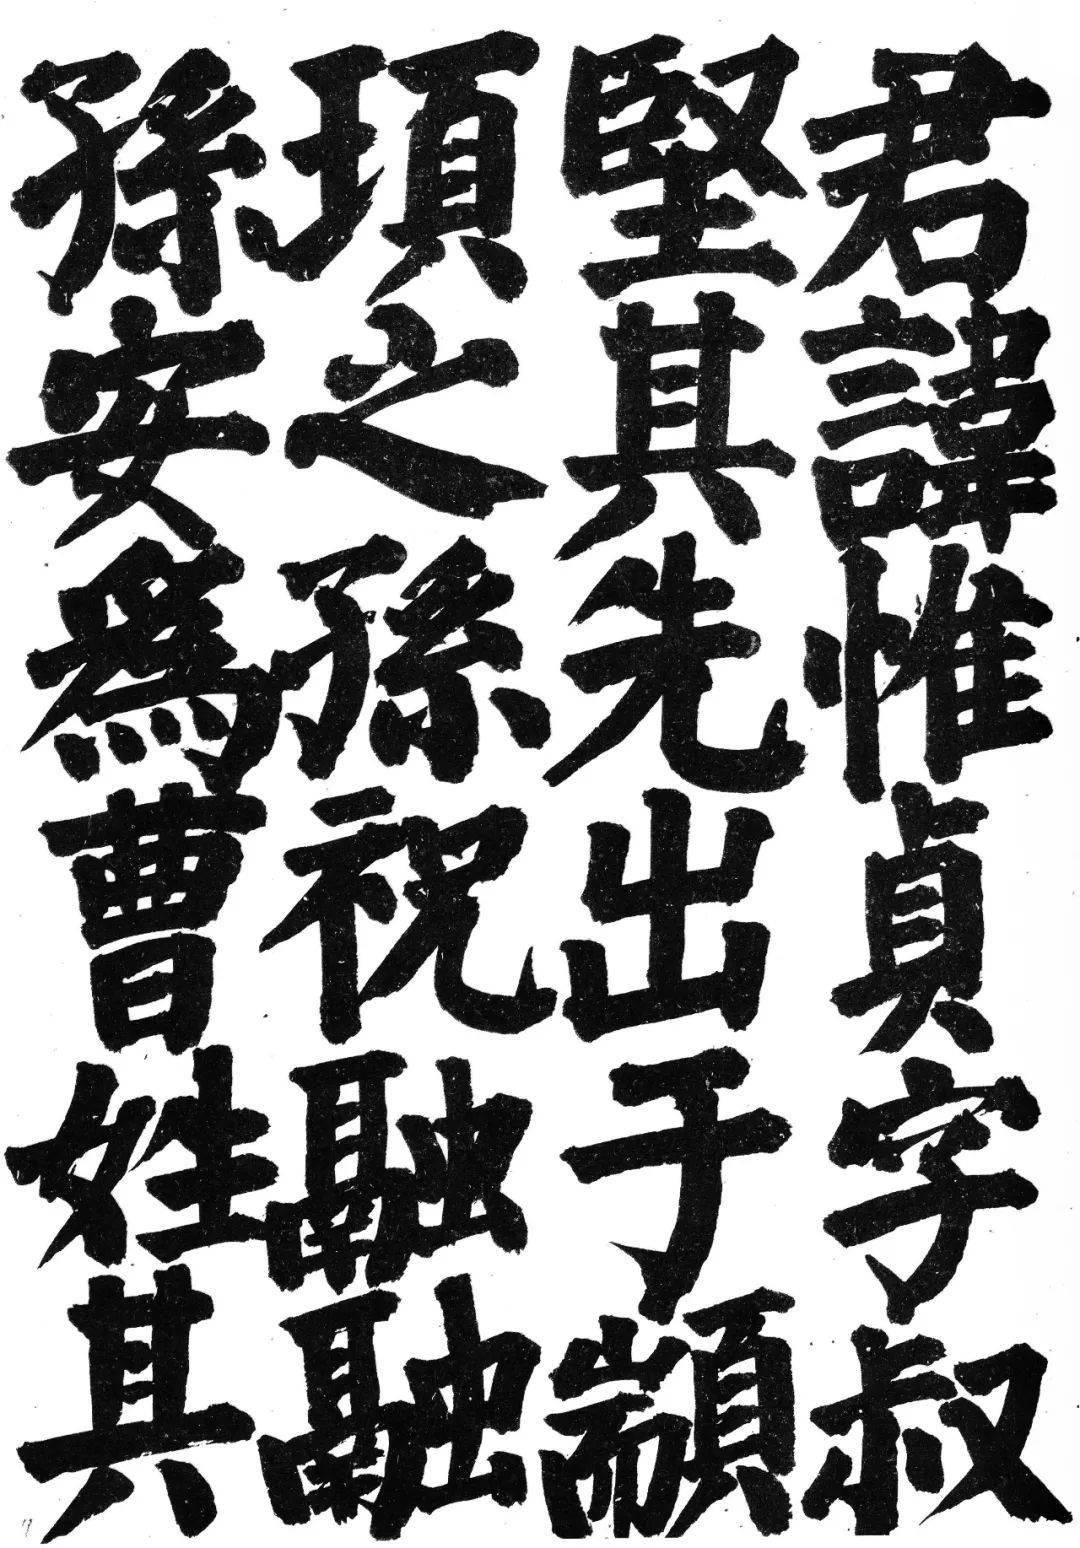 君諱惟貞字叔
堅其先出于顓
頊之孫祝融融
孫安爲曹姓其